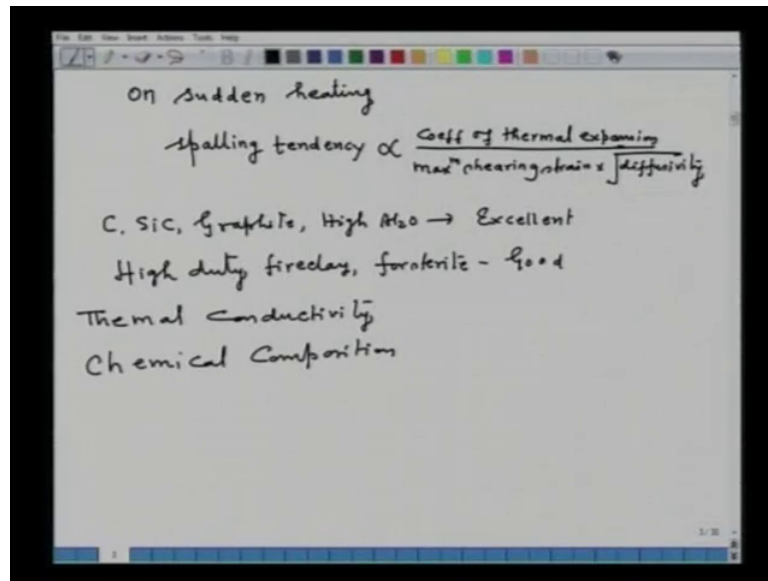 File Edit View Insert Actions Tools Help
On sudden heating
spalling tendency ∝ Coeff of thermal expansion
maxᵐ shearing strain x √diffusivity
C, SiC, Graphite, High Al2O → Excellent
High duty fireclay, forsterite - Good
Themal conductivity
Chemical Composition